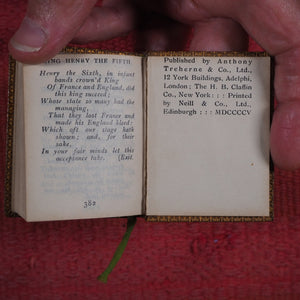 KING HENRY THE FIFTH.
Henry the Sixth, in infant
bands crown'd King
Of France and England, did
this king succeed;
Whose state so many had the
managing,
That they lost France and
made his England bleed:
Which oft our stage hath
shown; and, for their
sake,
In your fair minds let this
acceptance take. [Exit.
382
Published by Anthony
Treherne & Co., Ltd.,
12 York Buildings, Adelphi,
London: The H. B. Claflin
Co., New York : : : Printed
by Neill & Co., Ltd.,
Edinburgh : : : MDCCCCV